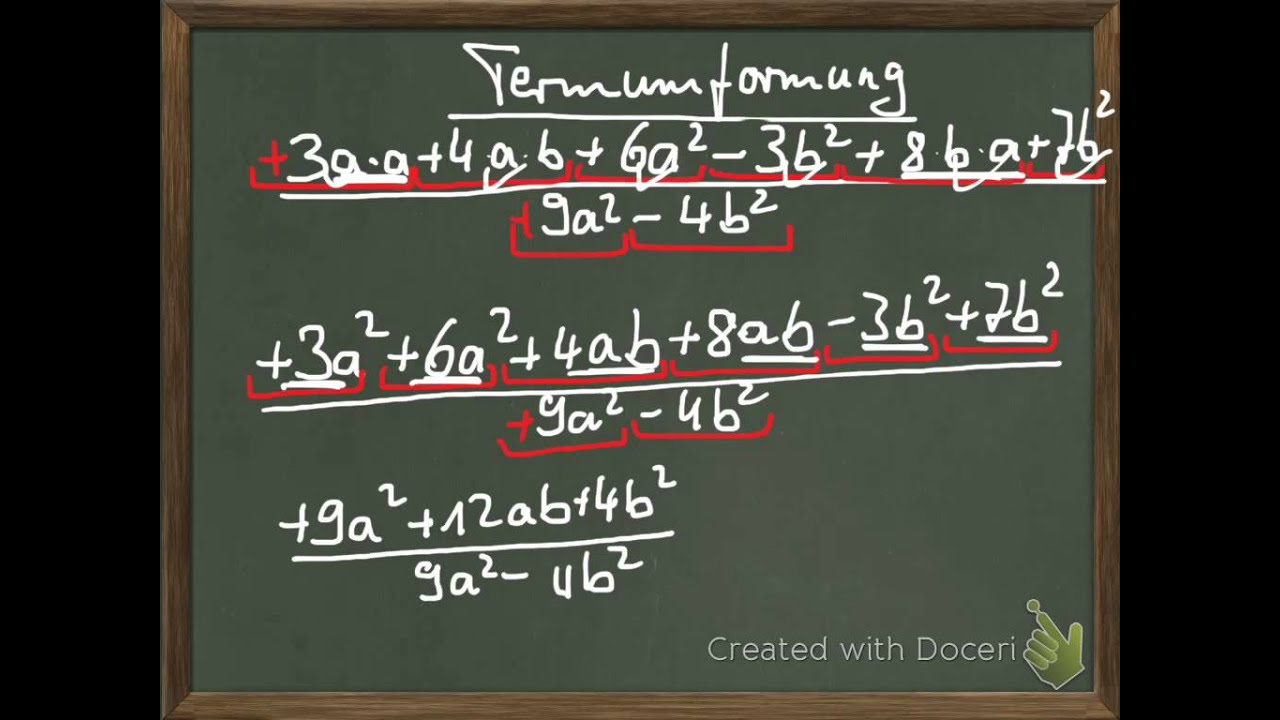 Termumformung
+3a·a+4·a·b+6a²-3b²+8·b·a+7b²
+9a²-4b²
+3a²+6a²+4ab+8ab-3b²+7b²
+9a²-4b²
+9a²+12ab+4b²
9a²-4b²
Created with Doceri